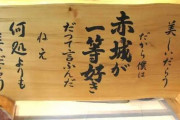 美しいだらう
だから僕は
赤城が
一等好き
だって言ふんだ
ねえ
何処よりも